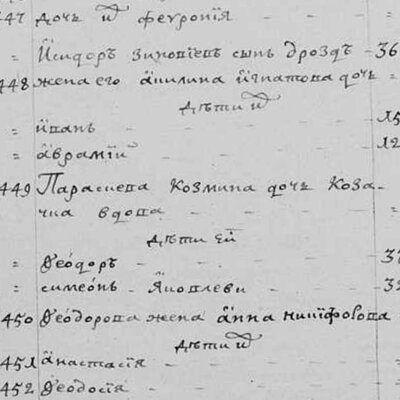 447 дочь их феѵронія
Исидоръ зиновіевъ сынъ дроздъ - 36
448 жена его акилина игнатова дочь
дѣти их
иванъ - 15
аврамій - 12
449 Параскева Козмина дочь Коза-
чка вдова
дѣти ей
Ѳеодоръ
симеонъ - Яковлеви
450 Ѳеодорова жена анна никифорова
дѣти их
451 анастасія
452 Ѳеодосія